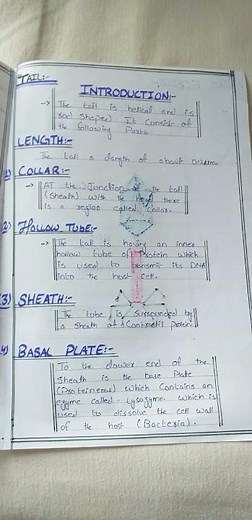 TAIL:-
INTRODUCTION:-
→ The tail is helical and is
rod shaped. It consist of
the following Parts.
LENGTH:-
The tail a length of about
1) COLLAR:-
→ AT the Junction of the tail
(Sheath) with the Head there
is a region called Collar.
2) HOLLOW TUBE:-
→ The tail is having an inner
hollow tube of Protein which
is used to transmit its DNA
into the host cell.
3) SHEATH:-
The tube is surrounded by
a sheath of Contractile protein.
4) BASAL PLATE:-
To the lower end of the
Sheath is the base Plate
(Proteineous) which Contains an
enzyme called - Lysozyme which is
used to dissolve the cell wall
of the host (Bacteria).